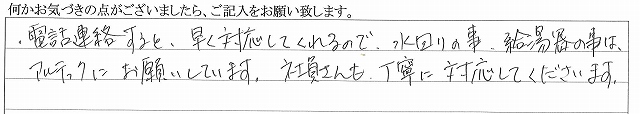 何かお気づきの点がございましたら、ご記入をお願い致します。
・電話連絡すると、早く対応してくれるので、水回りの事、給湯器の事は、
アルテックにお願いしています。社員さんも、丁寧に対応してくださいます。